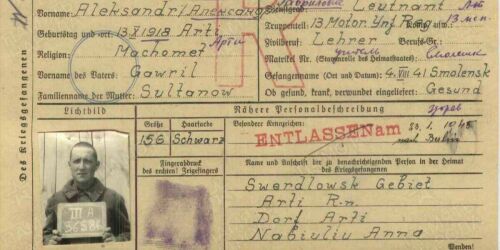 Vorname: Aleksandr/Александр
Dienstgrad: Leutnant
Geburtstag und -ort: 13.X.1918 Arti Арти
Truppenteil: 13 Motor. Inf. Reg.
Religion: Machomet
Zivilberuf: Lehrer Berufs-Gr.:
Matrikel Nr. (Stammrolle des Heimatstaates): учитель
Vorname des Vaters: Gawril
Gefangennahme (Ort und Datum): 4. VIII 41 Smolensk
Familienname der Mutter: Sultanow
Ob gesund, krank, verwundet eingeliefert: Gesund
Des Kriegsgefangenen
Lichtbild
Nähere Personalbeschreibung
Größe Haarfarbe
Besondere Kennzeichen:
156 Schwarz
ENTLASSEN am 23. 1. nach Berlin
Fingerabdruck
des rechten! Zeigefingers
Name und Anschrift der zu benachrichtigenden Person in der Heimat
des Kriegsgefangenen
Swerdlowsk Gebiet
Arti R-n.
Dorf Arti
Nabiuliu Anna
III A